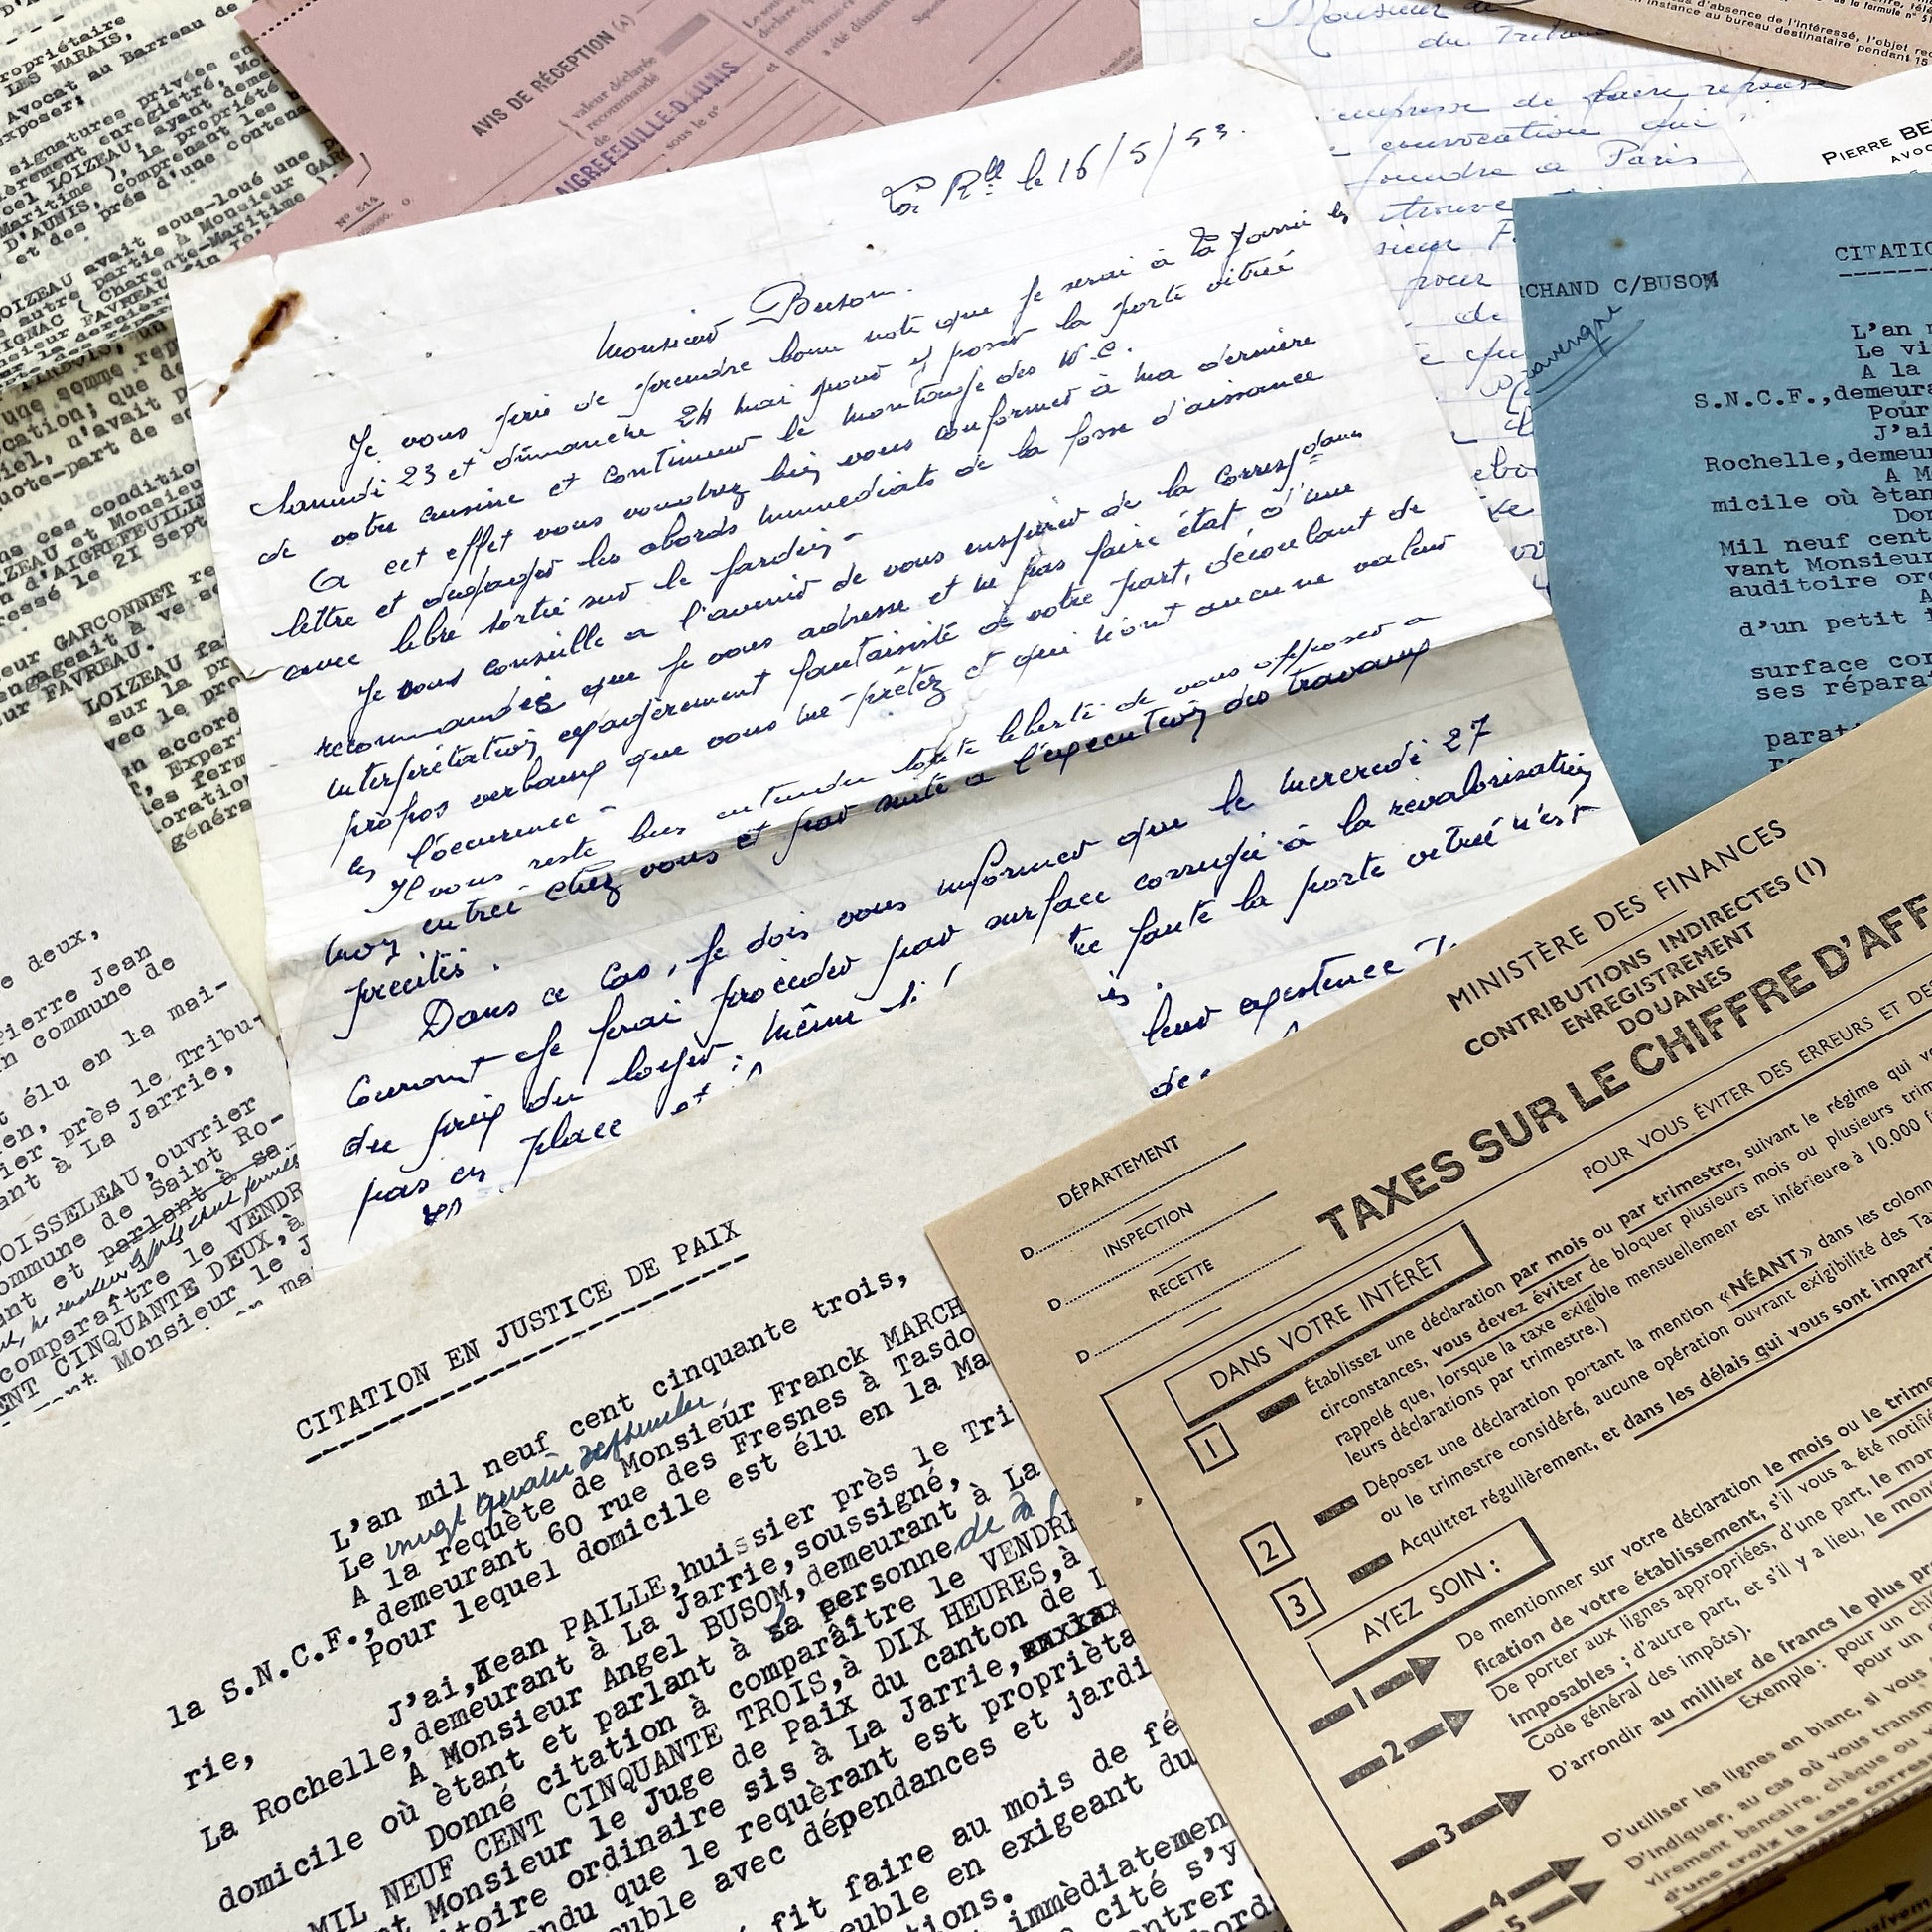 ropriétaire
LES MARAIS,
Avocat au Barreau de
exposer;
signatures privées en
ièrement enregistré, Mon
cel LOIZEAU, ayant deme
Maritime ), la propriété
D'AUNIS, comprenant les b
et des prés d'une contena
LOIZEAU avait sous-loué une p
autre partie à Monsieur GAR
IGNAC ( Charente-Maritime
nsieur FAVREAU
la dernière
une somme rep
cation; que de
iel, n'avait p
quote-part de so
ns ces conditio
ZEAU et Monsieu
n d'AIGREFEUILLE
essé le 21 sept
eur GARCONNET re
engageait à ve se
ur FAVREAU.
LOIZEAU fa
sur la pr
vec le pro
n accord
, Exper
les ferm
loration
généra
AVIS DE RÉCEPTION (1)
valeur déclarée
recommandé
de
AIGREFEUILLE-D'AUNIS
sous le n°
et
N° 514
Monsieur
du Tribu
empresse de faire réponse
convocation qui
rendre à Paris
trouve
sieur F
pour
de
d'absence de l'intéressé, l'objet
en instance au bureau destinataire pendant 15
PIERRE BE
AVOC
La Rlle le 16/5/53.
Monsieur Busom.
Je vous prie de prendre bonne note que je serai à La Jarrie le
Samedi 23 et dimanche 24 mai pour y poser la porte vitrée
de votre cuisine et continuer le montage des W.C.
A cet effet vous voudrez bien vous conformer à ma dernière
lettre et dégager les abords immédiats de la fosse d'aisance
avec libre sortie sur le jardin -
Je vous conseille à l'avenir de vous inspirer de la correspdance
recommandée que je vous adresse et ne pas faire état d'une
interprétation exagérément fantaisiste de votre part, découlant de
propos verbaux que vous me prêtez et qui n'ont aucune valeur
en l'occurence -
Il vous reste bien entendu toute liberté de vous opposer à
mon entrée chez vous et par suite à l'exécution des travaux
précités.
Dans ce cas, je dois vous informer que le Mercredi 27
Courant je ferai procéder par surface corrigée à la revalorisation
du prix du loyer; même si
te faute la porte vitrée n'est
pas en place et
leur existence
CITATIO
RCHAND C/BUSOM
L'an m
Le vi
A la
S.N.C.F.,demeura
Pour
J'ai
Rochelle,demeu
A M
micile où ètan
Don
Mil neuf cent
vant Monsieur
auditoire ord
A
d'un petit i
surface cor
ses réparat
parat
re
e deux,
Pierre Jean
n commune de
t élu en la mai-
en,
ier près le Tribu-
ant à La Jarrie,
OISSELEAU,ouvrier
ommune de Saint Ro-
ant et parlant à sa
comparaître le VENDR
ENT CINQUANTE DEUX,à
Monsieur le J
CITATION EN JUSTICE DE PAIX
L'an mil neuf cent cinquante trois,
Le vingt quatre septembre,
A la requète de Monsieur Franck MARCH
la S.N.C.F.,demeurant 60 rue des Fresnes à Tasdo
Pour lequel domicile est élu en la Ma
rie,
J'ai,Jean PAILLE,huissier près le Tri
La Rochelle,demeurant à La Jarrie,soussigné,
A Monsieur Angel BUSOM,demeurant à La
domicile où ètant et parlant à sa personne
Donné citation à comparaître le VENDRE
MIL NEUF CENT CINQUANTE TROIS,à DIX HEURES,à
nt Monsieur le Juge de Paix du canton de L
itoire ordinaire sis à La Jarrie,
ndu que le requèrant est proprièta
uble avec dépendances et jardi
fit faire au mois de fé
euble en exigeant du
tions.
immèdiatemen
cité s'y
ntrer
MINISTÈRE DES FINANCES
CONTRIBUTIONS INDIRECTES (1)
ENREGISTREMENT
DOUANES
TAXES SUR LE CHIFFRE D'AFF
POUR VOUS ÉVITER DES ERREURS ET DES
DÉPARTEMENT
D
INSPECTION
D
RECETTE
D
DANS VOTRE INTÉRÊT
1
Établissez une déclaration par mois ou par trimestre, suivant le régime qui v
circonstances, vous devez éviter de bloquer plusieurs mois ou plusieurs trim
rappelé que, lorsque la taxe exigible mensuellement est inférieure à 10.000
leurs déclarations par trimestre.)
2
Déposez une déclaration portant la mention «NÉANT» dans les colonn
ou le trimestre considéré, aucune opération ouvrant exigibilité des Ta
3
Acquittez régulièrement, et dans les délais qui vous sont imparti
AYEZ SOIN :
1
De mentionner sur votre déclaration le mois ou le trime
fication de votre établissement, s'il vous a été notifié
2
De porter aux lignes appropriées, d'une part, le mon
imposables ; d'autre part, et s'il y a lieu, le mon
Code général des impôts).
3
D'arrondir au millier de francs le plus pro
Exemple : pour un chi
pour un
4
D'utiliser les lignes en blanc, si vous
5
D'indiquer, au cas où vous transm
virement bancaire, chèque ou
d'une croix la case corres